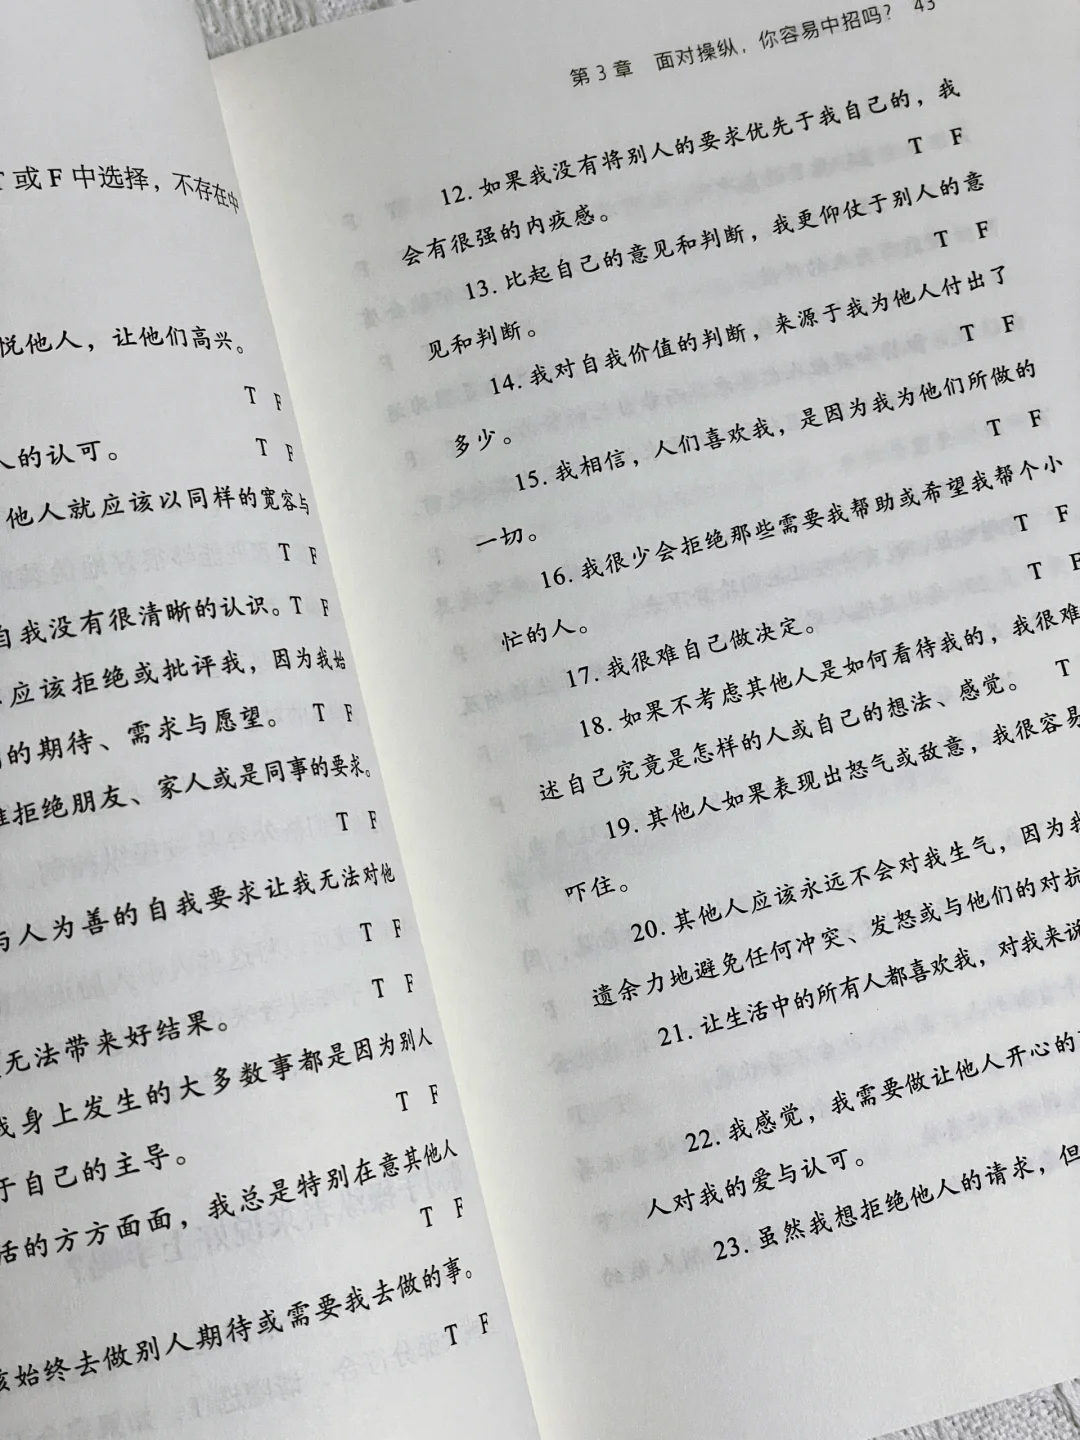 T 或 F 中选择，不存在中
悦他人，让他们高兴。
T F
人的认可。
T F
他人就应该以同样的宽容与
T F
自我没有很清晰的认识。T F
应该拒绝或批评我，因为我始
的期待、需求与愿望。 T F
拒绝朋友、家人或是同事的要求。
T F
与人为善的自我要求让我无法对他
T F
T F
无法带来好结果。
我身上发生的大多数事都是因为别人
T F
于自己的主导。
活的方方面面，我总是特别在意其他人
T F
该始终去做别人期待或需要我去做的事。
T F
第 3 章 面对操纵，你容易中招吗？ 43
12. 如果我没有将别人的要求优先于我自己的，我
会有很强的内疚感。 T F
13. 比起自己的意见和判断，我更仰仗于别人的意
见和判断。 T F
14. 我对自我价值的判断，来源于我为他人付出了
多少。 T F
15. 我相信，人们喜欢我，是因为我为他们所做的
一切。 T F
16. 我很少会拒绝那些需要我帮助或希望我帮个小
忙的人。 T F
17. 我很难自己做决定。 T F
18. 如果不考虑其他人是如何看待我的，我很难
述自己究竟是怎样的人或自己的想法、感觉。 T
19. 其他人如果表现出怒气或敌意，我很容易
吓住。
20. 其他人应该永远不会对我生气，因为我
遗余力地避免任何冲突、发怒或与他们的对抗
21. 让生活中的所有人都喜欢我，对我来说
22. 我感觉，我需要做让他人开心的
人对我的爱与认可。
23. 虽然我想拒绝他人的请求，但